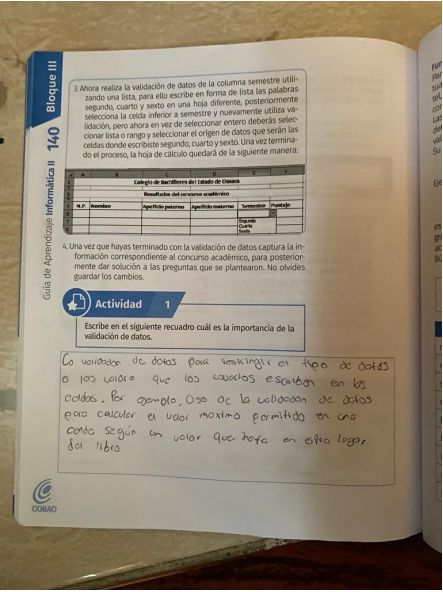 Bloque III
140
Guía de Aprendizaje Informática II
3. Ahora realiza la validación de datos de la columna semestre utili-
zando una lista, para ello escribe en forma de lista las palabras
segundo, cuarto y sexto en una hoja diferente, posteriormente
selecciona la celda inferior a semestre y nuevamente utiliza va-
lidación, pero ahora en vez de seleccionar entero deberás selec-
cionar lista o rango y seleccionar el origen de datos que serán las
celdas donde escribiste segundo, cuarto y sexto. Una vez termina-
do el proceso, la hoja de cálculo quedará de la siguiente manera:
Colegio de Bachilleres del Estado de Oaxaca
Resultados del concurso académico
N.P. Nombre Apellido paterno Apellido materno Semestre Puntaje
Segundo
Cuarto
Sexto
4. Una vez que hayas terminado con la validación de datos captura la in-
formación correspondiente al concurso académico, para posterior-
mente dar solución a las preguntas que se plantearon. No olvides
guardar los cambios.
Actividad 1
Escribe en el siguiente recuadro cuál es la importancia de la
validación de datos.
de datos para restringir el tipo de datos
o los valore que los usuarios escriben en las
celdas. Por ejemplo, Uso de la validacion de datos
para calcular el valor maximo permitido en una
celda según un valor que haya en otro lugar
del libro
COBAO